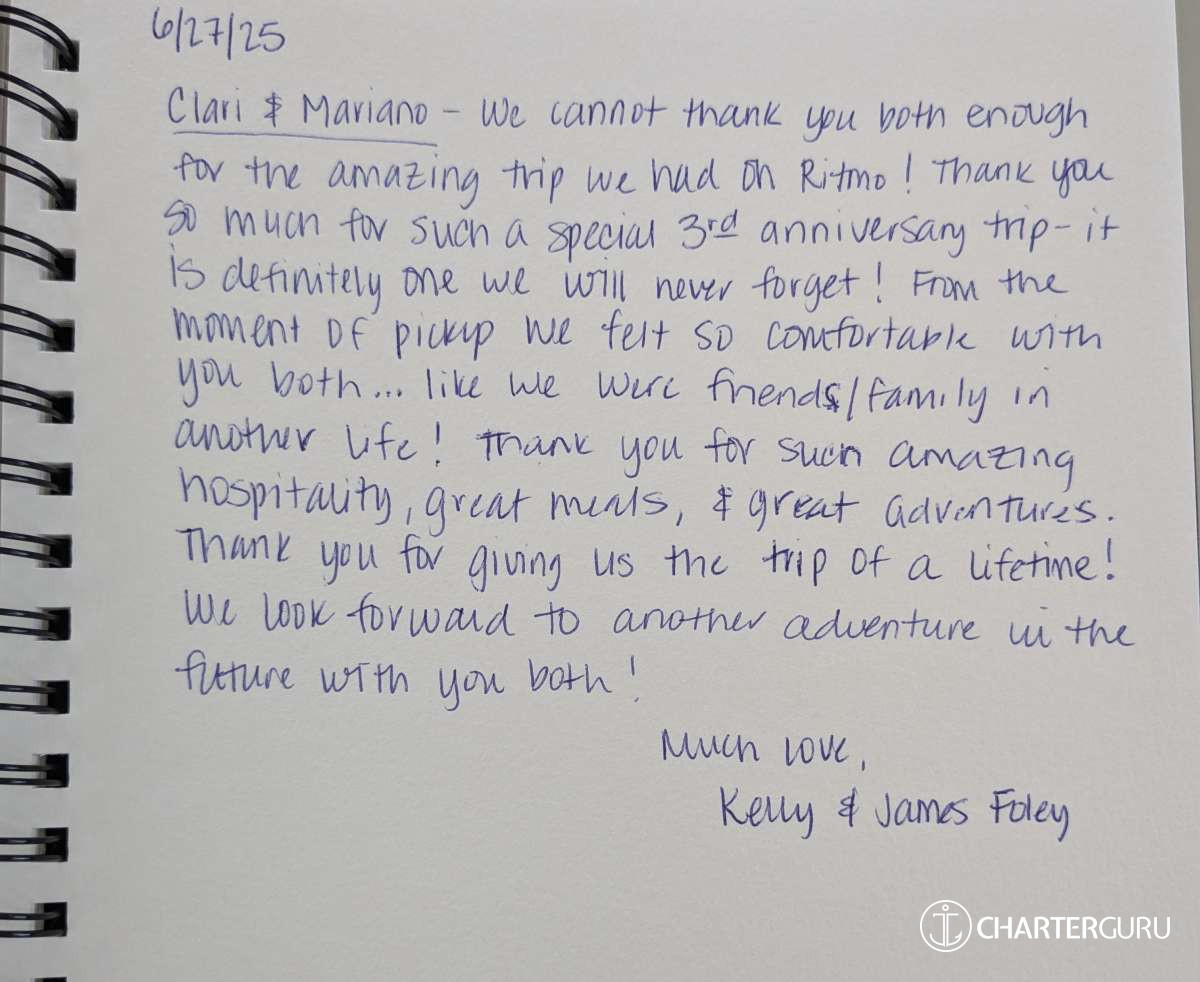 6/27/25
Clari & Mariano - We cannot thank you both enough
for the amazing trip we had on Ritmo! Thank you
so much for such a special 3rd anniversary trip - it
is definitely one we will never forget! From the
moment of pickup we felt so comfortable with
you both... like we were friends/family in
another life! Thank you for such amazing
hospitality, great meals, & great adventures.
Thank you for giving us the trip of a lifetime!
We look forward to another adventure in the
future with you both!
Much love,
Kelly & James Foley
CHARTERGURU